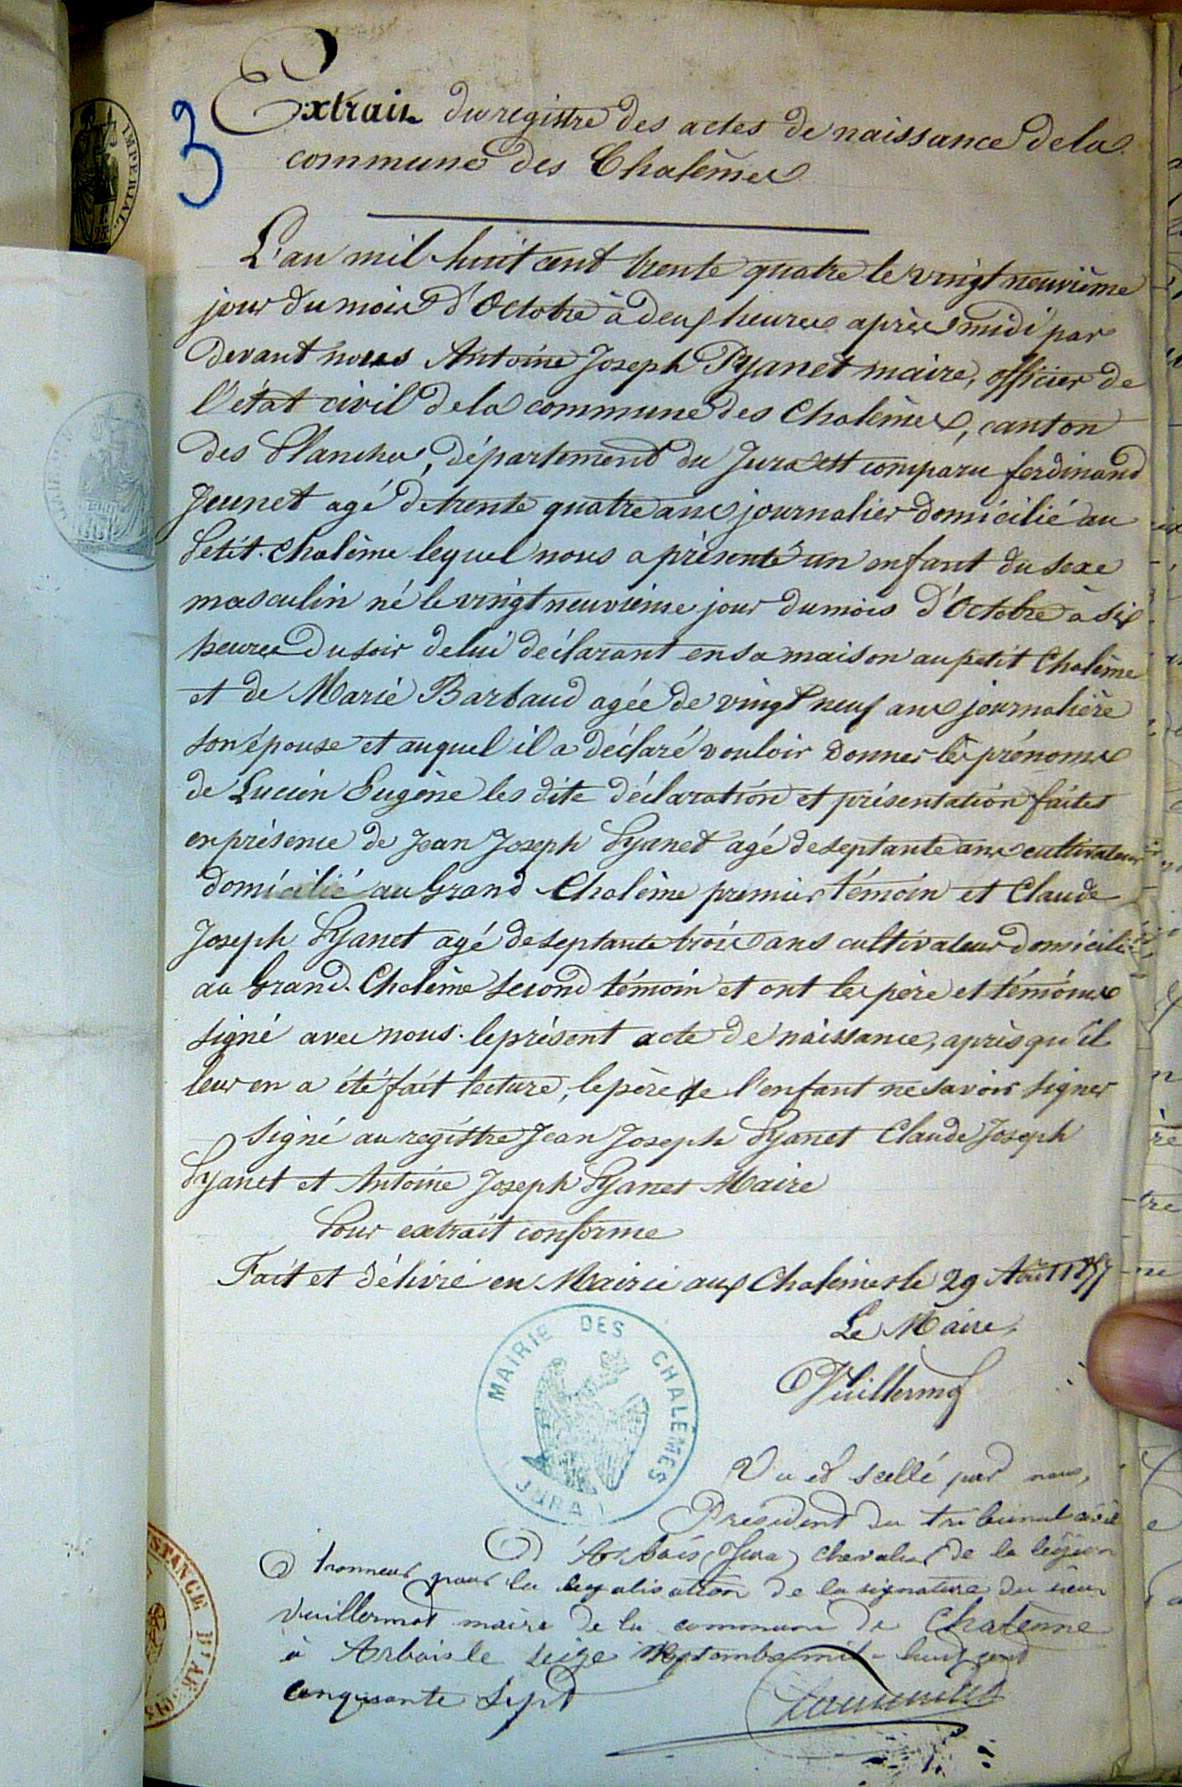 3
Extrait du registre des actes de naissance de la
commune des Chalèmes
L'an mil huit cent trente quatre le vingt neuvième
jour du mois d'Octobre à deux heures après midi par
devant nous Antoine Joseph Pyanet maire, officier de
l'état civil de la commune des Chalèmes, canton
des Planches, département du Jura est comparu ferdinand
Jeunet agé de trente quatre ans journalier domicilié au
Petit-Chalème lequel nous a présenté un enfant du sexe
masculin né le vingt neuvieme jour du mois d'Octobre à six
heures du soir de lui déclarant en sa maison au petit Chalème
et de Marie Barbaud agée de vingt neuf ans journalière
son épouse et auquel il a déclaré vouloir donner les prénoms
de Lucien Eugène les dite déclaration et présentation faites
en présence de Jean Joseph Pyanet agé de septante ans cultivateur
domicilié au Grand-Chalème premier témoin et Claude
Joseph Pyanet agé de septante trois ans cultivateur domicilié
au Grand-Chalème second témoin et ont les père et témoins
signé avec nous le présent acte de naissance, après qu'il
leur en a été fait lecture, le père de l'enfant ne savoir signer
Signé au registre Jean Joseph Pyanet Claude Joseph
Pyanet et Antoine Joseph Pyanet Maire
Pour extrait conforme
Fait et délivré en Mairie aux Chalèmes le 29 Août 1857
Le Maire,
Vuillermoz
MAIRIE DES CHALÈMES
(JURA)
Vu et scellé par nous,
Président du tribunal civil
D'Arbois (Jura) chevalier de la légion
D'honneur pour la légalisation de la signature du sieur
Vuillermot maire de la commune de Chalème
à Arbois le seize septembre mil-huit cent
cinquante sept
IMPERIAL